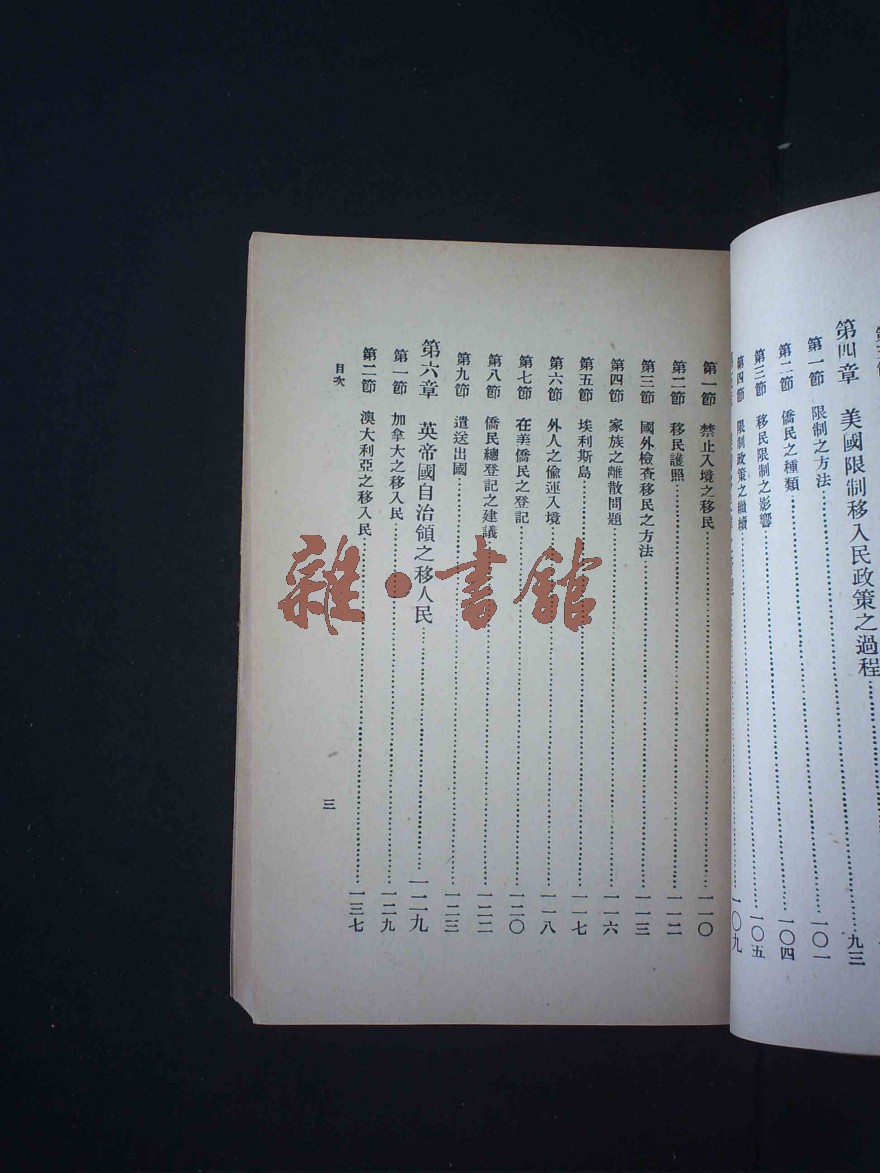 第四章 美國限制移入民政策之過程 九三
第一節 限制之方法 一〇一
第二節 僑民之種類 一〇四
第三節 移民限制之影響 一〇五
第四節 限制政策之繼續 一〇九
第一節 禁止入境之移民 一一〇
第二節 移民護照 一一二
第三節 國外檢查移民之方法 一一三
第四節 家族之離散問題 一一六
第五節 埃利斯島 一一七
第六節 外人之偷運入境 一一八
第七節 在美僑民之登記 一二〇
第八節 僑民總登記之建議 一二二
第九節 遣送出國 一二三
第六章 英帝國自治領之移入民 一二九
第一節 加拿大之移入民 一二九
第二節 澳大利亞之移入民 一三七
目次
三
雜·書館